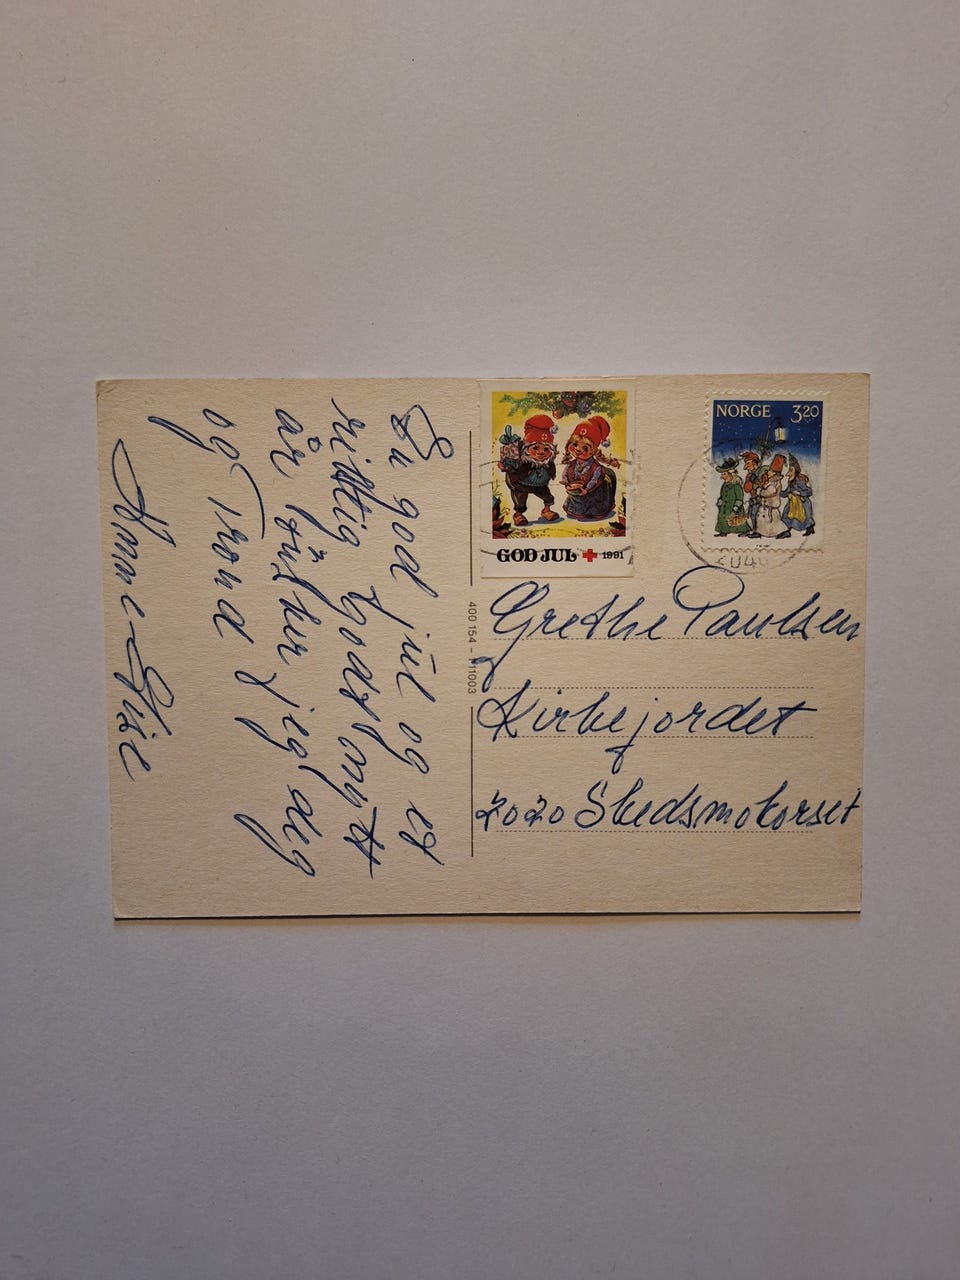 En god jul og et
riktig godt nytt
år ønsker jeg deg
og Trond
Anne-Lise
GOD JUL 1991
NORGE 3.20
400 154 - N11003
Grethe Paulsen
Kirkejordet
2020 Skedsmokorset